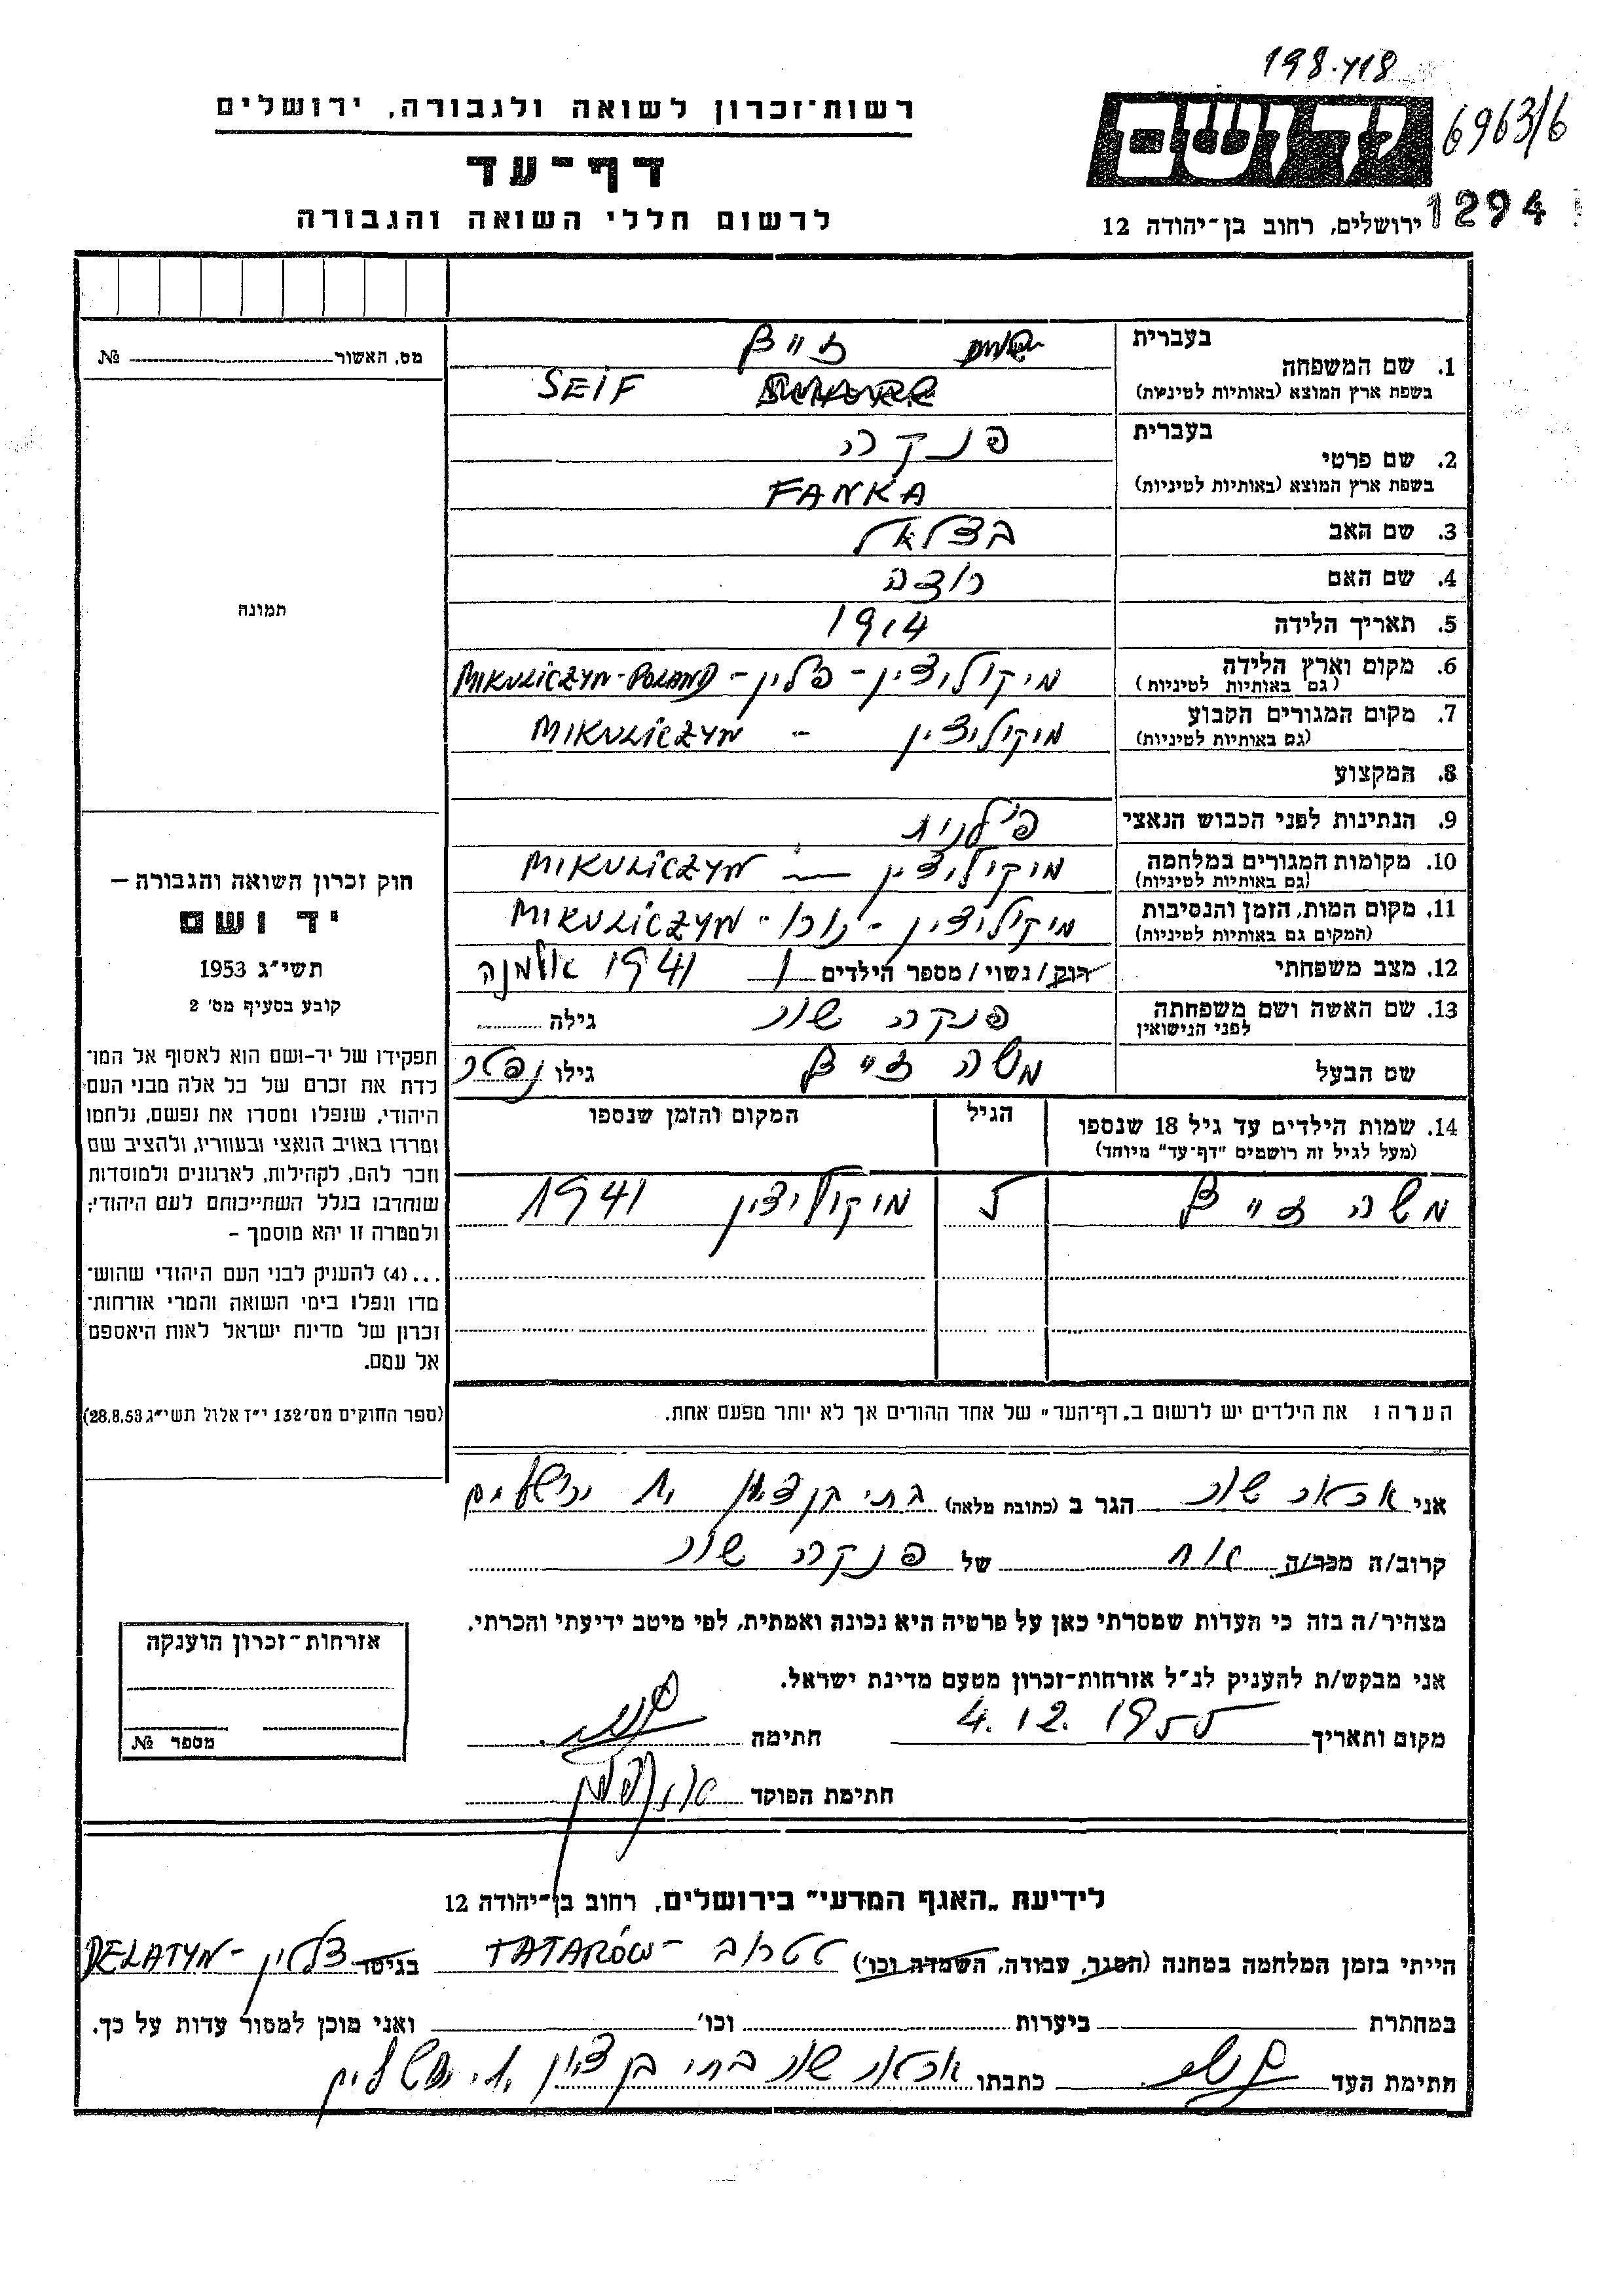 198.418
רשות־זכרון לשואה ולגבורה, ירושלים
ד ושם
6963/6
דף־עד
לרשום חללי השואה והגבורה
ירושלים, רחוב בן־יהודה 12
1294
מס. האשור № 
1. שם המשפחה
בעברית זייף
בשפת ארץ המוצא (באותיות לטיניות) SEIF
2. שם פרטי
בעברית פנקה
בשפת ארץ המוצא (באותיות לטיניות) FANKA
3. שם האב בצלאל
4. שם האם רוזה
5. תאריך הלידה 1914
6. מקום וארץ הלידה (גם באותיות לטיניות) מיקוליצין - פולין - MIKULICZYN-POLAND
7. מקום המגורים הקבוע (גם באותיות לטיניות) מיקוליצין - MIKULICZYN
8. המקצוע
9. הנתינות לפני הכבוש הנאצי פולנית
10. מקומות המגורים במלחמה (גם באותיות לטיניות) מיקוליצין - MIKULICZYN
11. מקום המות, הזמן והנסיבות (המקום גם באותיות לטיניות) מיקוליצין - MIKULICZYN
12. מצב משפחתי רוק/נשוי/מספר הילדים 1 1941 אלמנה
13. שם האשה ושם משפחתה לפני הנישואין פנקה שור גילה
שם הבעל משה זייף גילו נפטר
14. שמות הילדים עד גיל 18 שנספו
(מעל לגיל זה רושמים "דף־עד" מיוחד)
הגיל
המקום והזמן שנספו
משה זייף 5 מיקוליצין 1941
תמונה
חוק זכרון השואה והגבורה—
יד ושם
תשי"ג 1953
קובע בסעיף מס' 2
תפקידו של יד-ושם הוא לאסוף אל המו־
לדת את זכרם של כל אלה מבני העם
היהודי, שנפלו ומסרו את נפשם, נלחמו
ומרדו באויב הנאצי ובעוזריו, ולהציב שם
וזכר להם, לקהילות, לארגונים ולמוסדות
שנחרבו בגלל השתייכותם לעם היהודי;
ולמטרה זו יהא מוסמך—
...(4) להעניק לבני העם היהודי שהוש־
מדו ונפלו בימי השואה והמרי אזרחות־
זכרון של מדינת ישראל לאות היאספם
אל עמם.
(ספר החוקים מס' 132 י"ז אלול תשי"ג 28.8.53)
הערה: את הילדים יש לרשום ב„דף־העד" של אחד ההורים אך לא יותר מפעם אחת.
אני שור הגר ב (כתובת מלאה) בתי ירושלים
קרוב/ה מכר/ה אח של פנקה שור
מצהיר/ה בזה כי העדות שמסרתי כאן על פרטיה היא נכונה ואמתית, לפי מיטב ידיעתי והכרתי.
אני מבקש/ת להעניק לנ"ל אזרחות־זכרון מטעם מדינת ישראל.
מקום ותאריך 4.12.1955 חתימה
חתימת הפוקד
אזרחות־זכרון הוענקה
מספר №
לידיעת „האגף המדעי" בירושלים, רחוב בן־יהודה 12
הייתי בזמן המלחמה במחנה (הסגר, עבודה, השמדה וכו') טטרוב - TATARÓW בגיטו דלטין - DELATYN
במחתרת ביערות וכו' ואני מוכן למסור עדות על כך.
חתימת העד כתבתו שור בתי בן ציון ירושלים